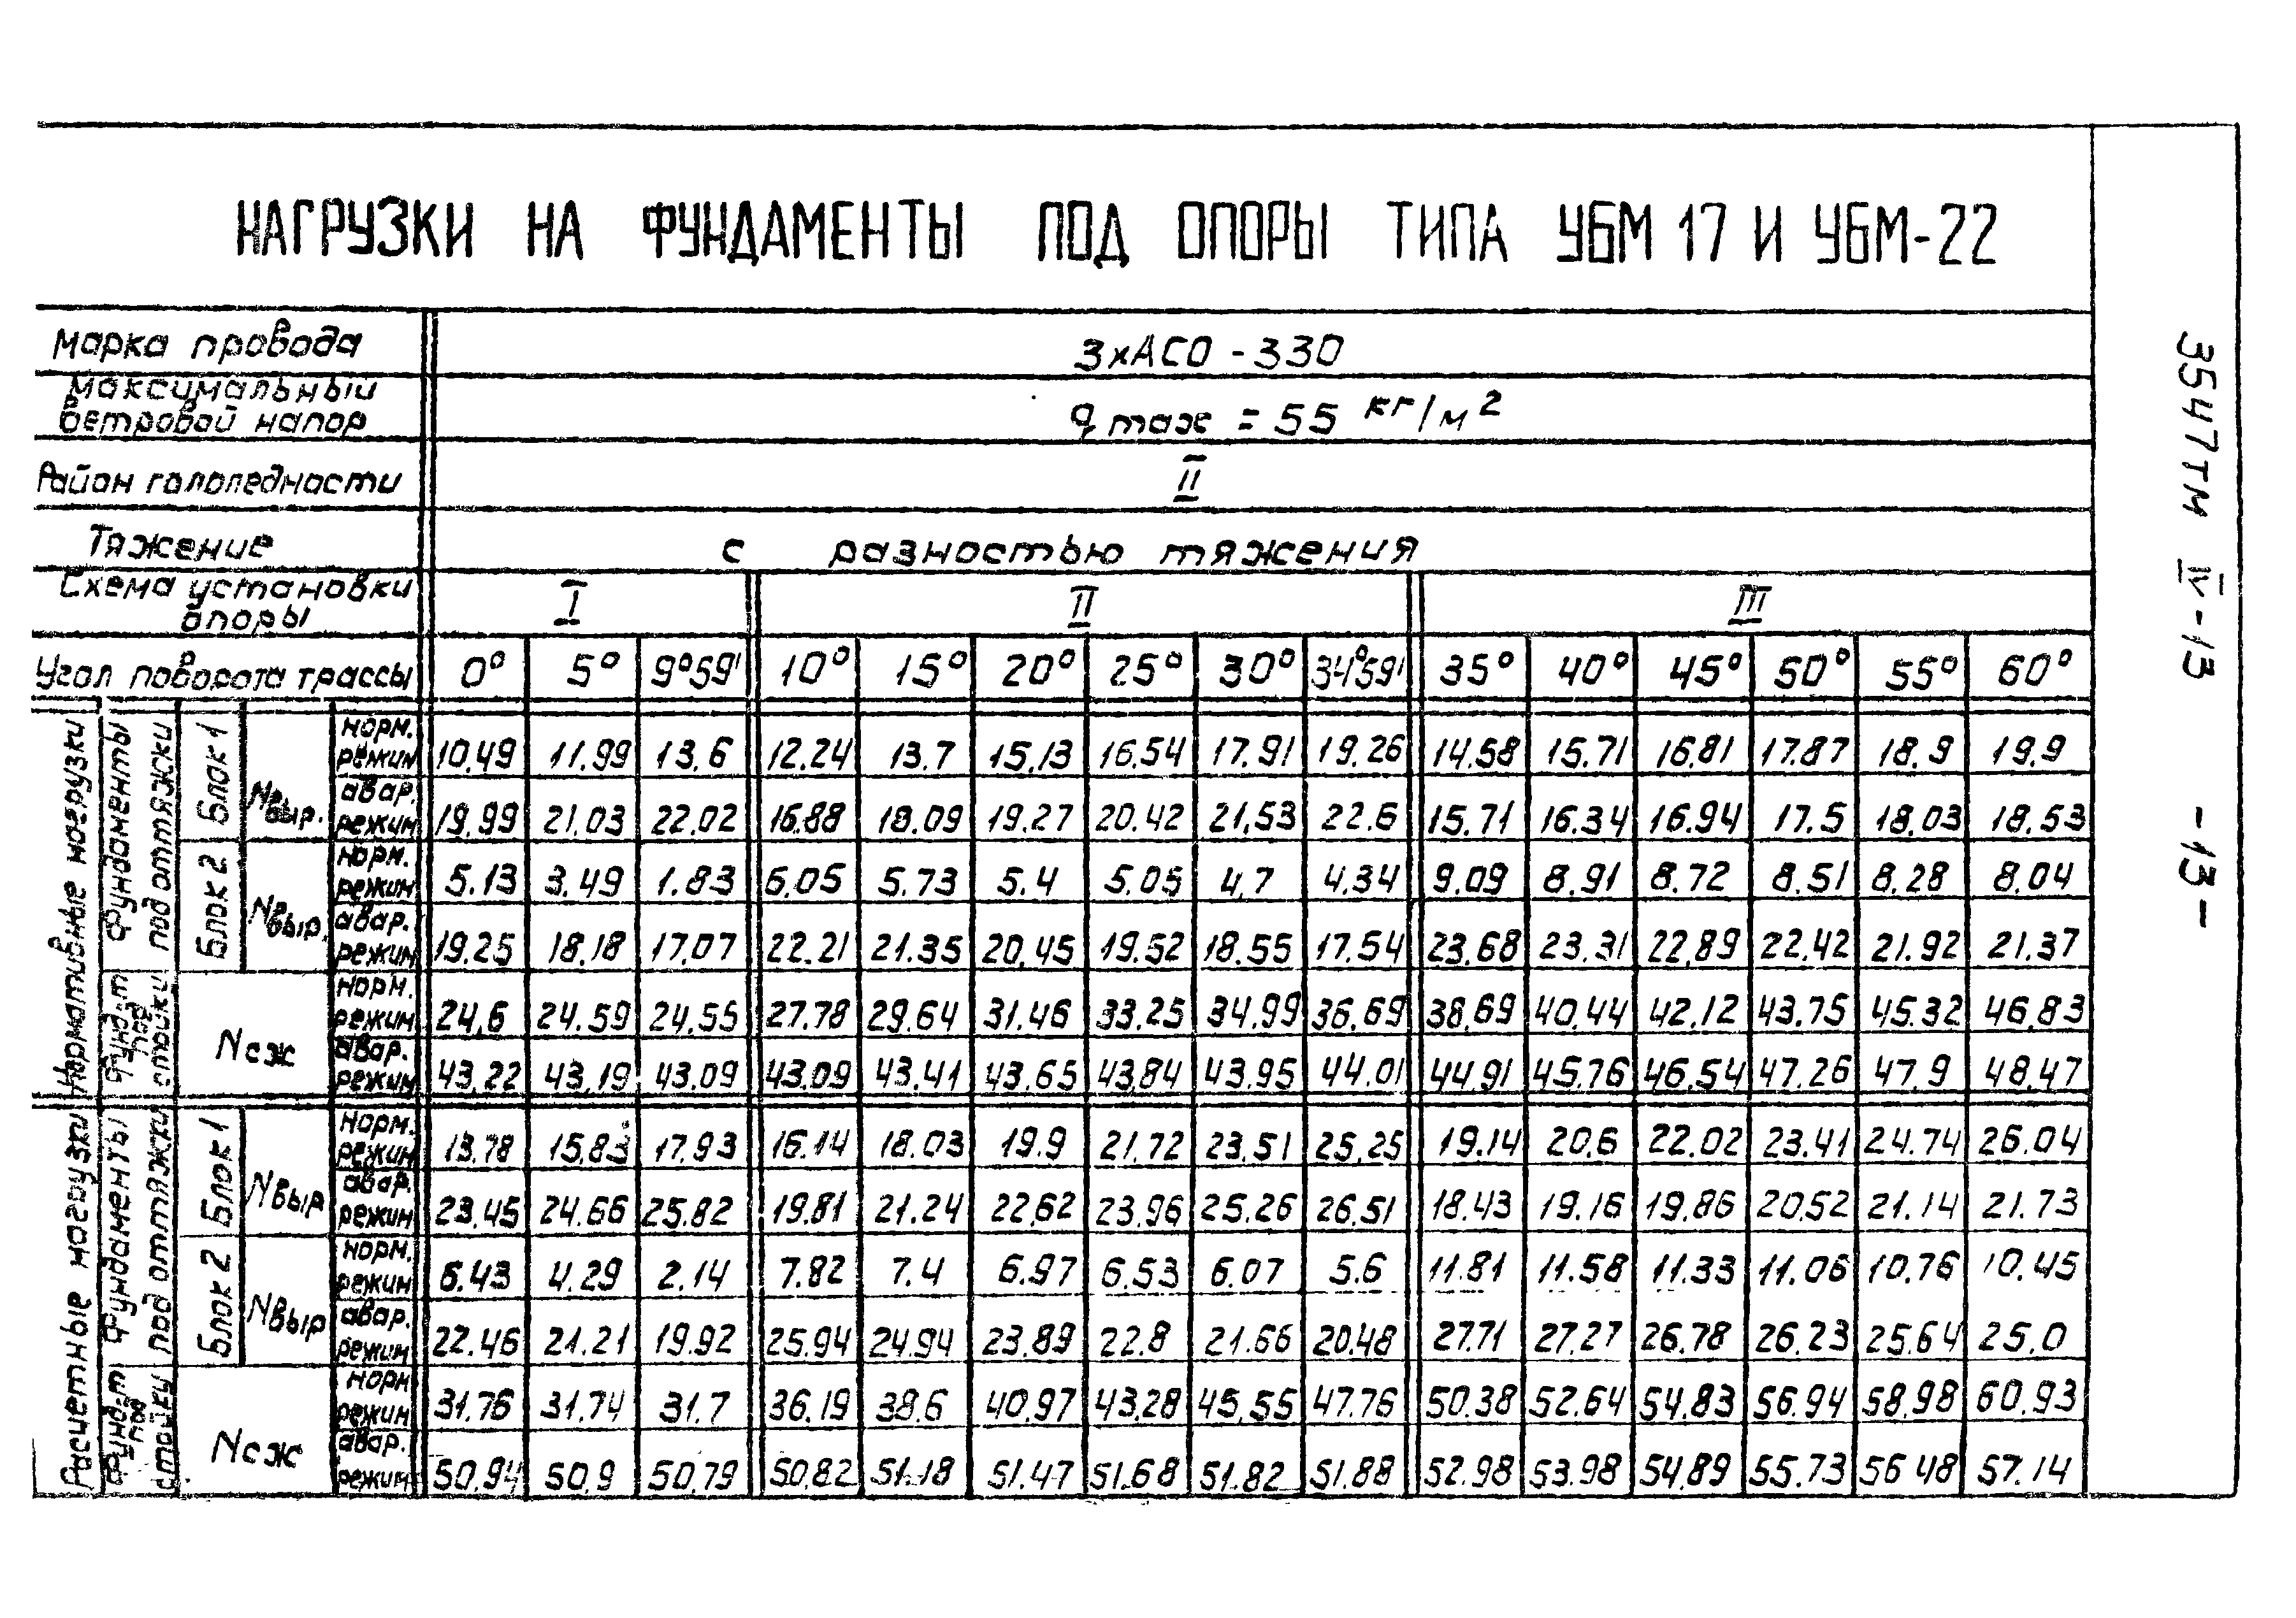 НАГРУЗКИ НА ФУНДАМЕНТЫ ПОД ОПОРЫ ТИПА УБМ 17 И УБМ-22
Марка провода 3хАСО-330
Максимальный
ветровой напор q max = 55 кг/м²
Район гололедности II
Тяжение с разностью тяжения
Схема установки
опоры I II III
Угол поворота трассы 0° 5° 9°59' 10° 15° 20° 25° 30° 34°59' 35° 40° 45° 50° 55° 60°
Нормативные нагрузки
Фундаменты
под оттяжки
Блок 1
Nвыр.
норм.
режим 10.49 11.99 13.6 12.24 13.7 15.13 16.54 17.91 19.26 14.58 15.71 16.81 17.87 18.9 19.9
авар.
режим 19.99 21.03 22.02 16.88 18.09 19.27 20.42 21,53 22.6 15.71 16.34 16.94 17.5 18.03 18.53
Блок 2
Nвыр.
норм.
режим 5.13 3.49 1.83 6.05 5.73 5.4 5.05 4,7 4.34 9.09 8.91 8.72 8.51 8.28 8.04
авар.
режим 19.25 18.18 17.07 22.21 21.35 20.45 19.52 18.55 17.54 23.68 23.31 22.89 22.42 21.92 21.37
Фунд.т
под
стойки
Nсж
норм.
режим 24,6 24.59 24.55 27.78 29.64 31.46 33.25 34.99 36.69 38.69 40.44 42.12 43.75 45.32 46.83
авар.
режим 43,22 43,19 43.09 43.09 43.41 43.65 43,84 43.95 44.01 44.91 45.76 46.54 47.26 47.9 48.47
Расчетные нагрузки
Фундаменты
под оттяжки
Блок 1
Nвыр
норм.
режим 13.78 15,83 17.93 16.14 18.03 19.9 21.72 23.51 25,25 19.14 20.6 22.02 23.41 24.74 26.04
авар.
режим 23.45 24.66 25.82 19.81 21.24 22,62 23.96 25.26 26.51 18.43 19.16 19.86 20.52 21.14 21.73
Блок 2
Nвыр
норм.
режим 6.43 4.29 2.14 7.82 7.4 6.97 6.53 6.07 5.6 11.81 11.58 11.33 11.06 10.76 10.45
авар.
режим 22.46 21.21 19.92 25.94 24.94 23.89 22.8 21.66 20.48 27.71 27.27 26.78 26.23 25.64 25.0
Фунд.т
под
стойку
Nсж
норм
режим 31.76 31.74 31.7 36.19 38.6 40.97 43.28 45,55 47.76 50.38 52.64 54.83 56.94 58.98 60.93
авар.
режим 50.94 50,9 50.79 50.82 51.18 51.47 51.68 51.82 51.88 52.98 53.98 54.89 55.73 56 48 57.14
3547тм IV-13 -13-